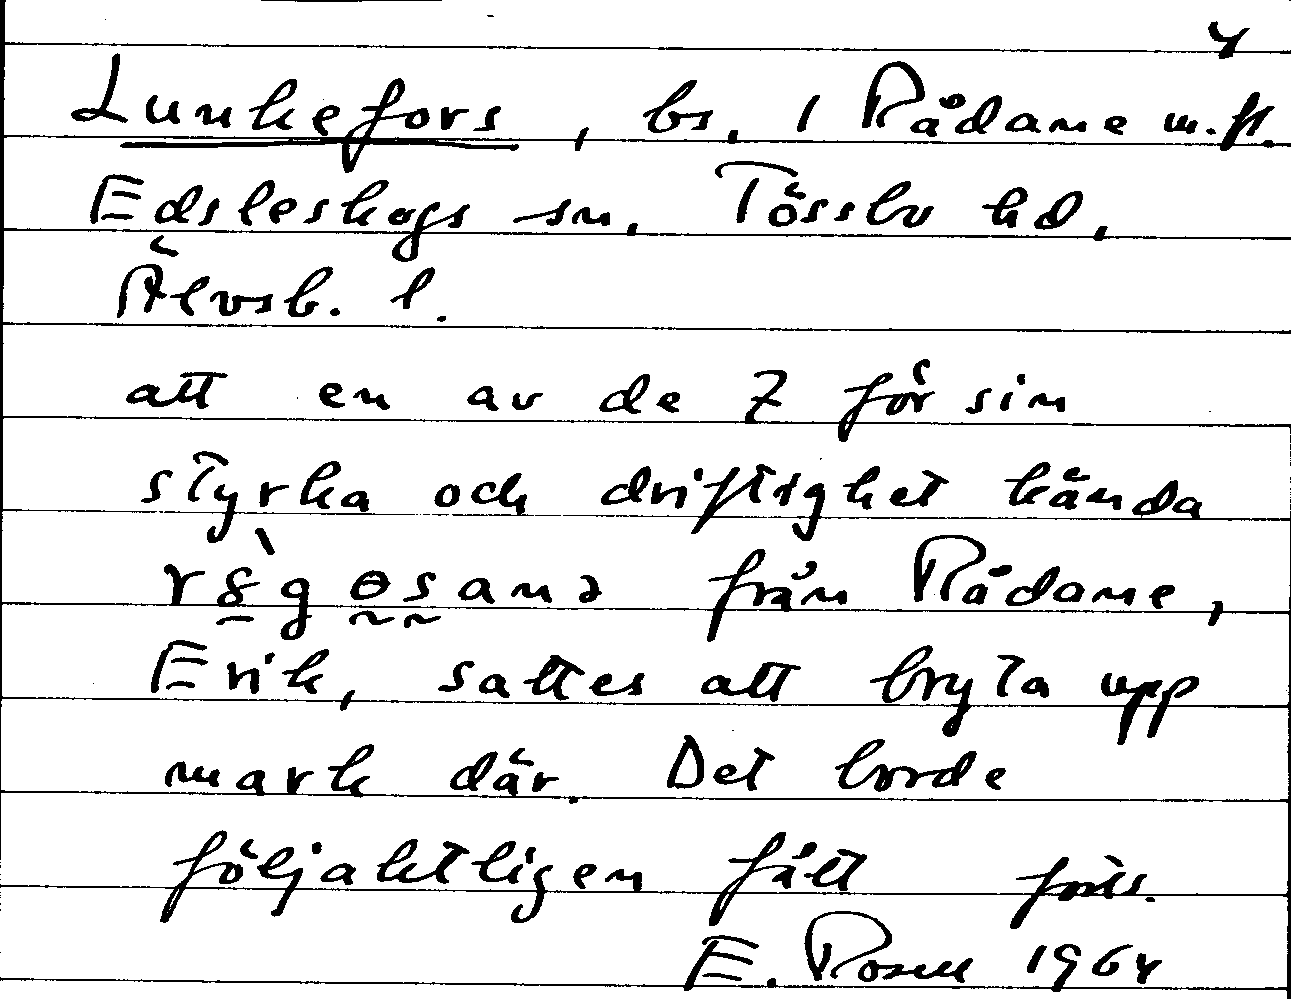 4
Lunkefors, bs. 1 Rådane m.fl.
Edsleskogs sn. Tössbo hd.
Älvsb. l.
att en av de 7 för sin
styrka och driftighet kända
från Rådane,
Erik, sattes att bryta upp
mark där. Det borde
följaktligen fått forts.
E. Rosell 1964